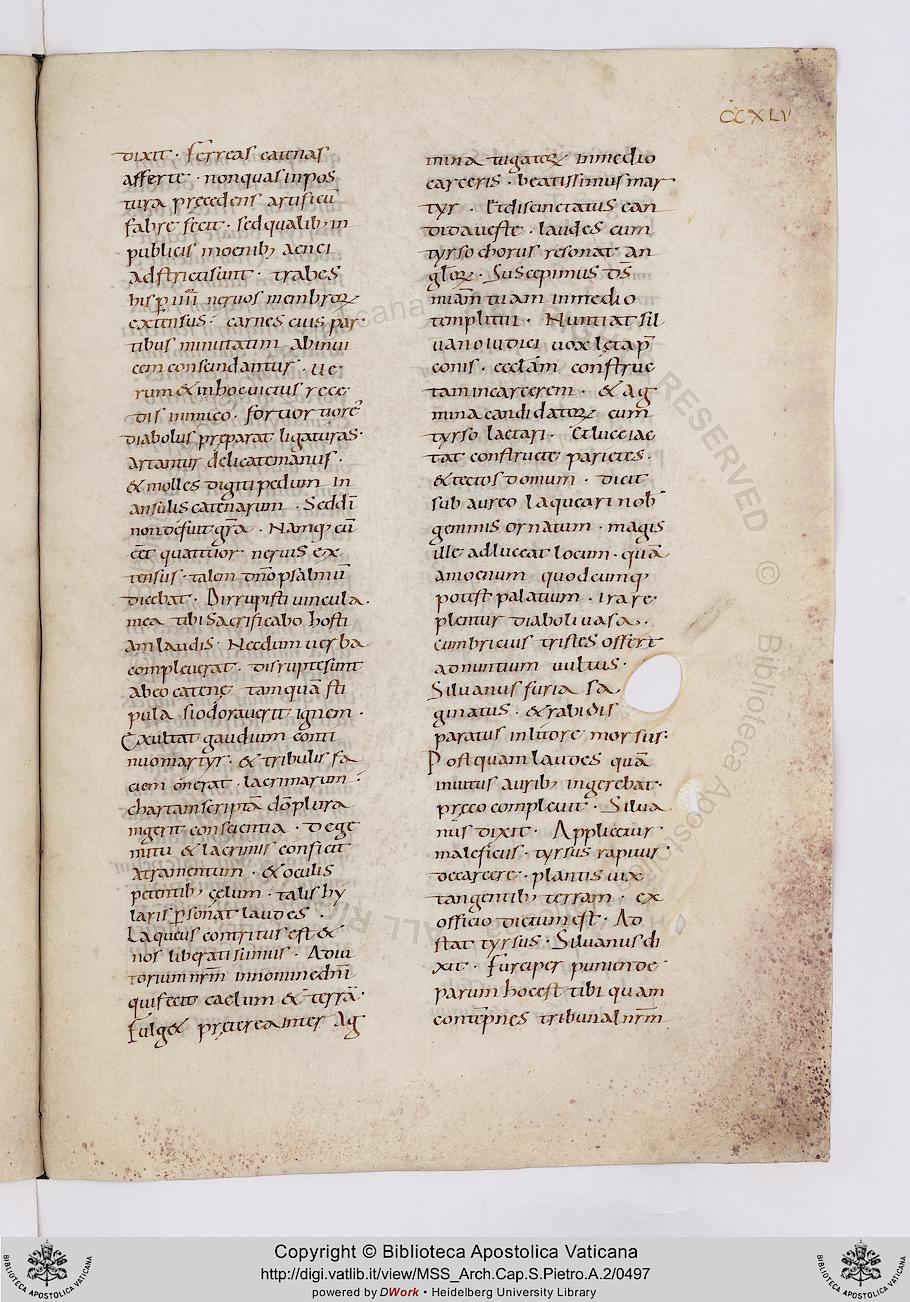 CCXLV
dixit · Ferreas catenas
afferte · nonquas inpos
tura precedens artificū
fabre fecit · sed qualib; in
publicis moenib; aenei
adstricti sunt · trabes
his p iiii nervos membroꝝ
extensus · carnes eius par
tibus minutatim abinui
cem conscindantur · ue
rum & inhoc uictus rece
dis inimico · fortior
diabolus preparat ligaturas·
artantur delicate manus ·
& molles digiti pedum in
ansulis catenarum · Sed dī
non defuit grā · Namq; cū
eēt quattuor neruis ex
tensus · talem dno psalmū
dicebat · Dirrupisti uincula ·
mea tibi sacrificabo hosti
am laudis · Necdum uerba
compleuerat · disrupte sunt
abeo catenę tamquā sti
pula si odorauerit ignem ·
Exultat gaudium conti
nuo martyr · & tribulis fa
ciem onerat · lacrimarum
chartam scriptā plura
ingerit conscientia · De ge
mitu & lacrimis conficit
atramentum · & oculis
petentib; çelum · talis hy
laris psonat laudes ·
Laqueus contritus est &
nos liberati sumus · Adiu
torium nrm innomine dnī
qui fecit caelum & terrā·
Fulg& pręterea inter ag
mina tugatoꝝ inmedio
carceris · beatissimus mar
tyr · Et discinctatus can
dida ueste · laudes cum
tyrso chorus resonat an
gloꝝ · Suscepimus dS̄
miām tuam inmedio
templi tui · Nuntiat sil
uano iudici uox lęta p̄
conis · ecclām construc
tam incarcerem · & ag
mina candidatoꝝ cum
tyrso laetari · Et lucciae
tat constructe parietes ·
& tectos domum · dicit
sub aureo laqueari nob
gemmis ornatum · magis
ille adluceat locum · quā
amoenum quodcumq;
potest palatium · Ira re
pletur diaboli uasa ·
cumbricius tristes offert
ad nuntium uultus ·
Siluanus furia sa
ginatus · & rabidis
paratus in litore morsus:
Postquam laudes quā
inuitus aurib; ingerebat·
pręco compleuit · Silua
nus dixit · Applicetur
maleficus · tyrsus rapitur
de carcere · plantis uix
tangentib; terram · ex
officio dictum est · Ad
stat tyrsus · Siluanus di
xit · Furcifer puniende
parum hoc est tibi quam
contēpnes tribunal nrm
Copyright © Biblioteca Apostolica Vaticana
http://digi.vatlib.it/view/MSS_Arch.Cap.S.Pietro.A.2/0497
powered by DWork • Heidelberg University Library